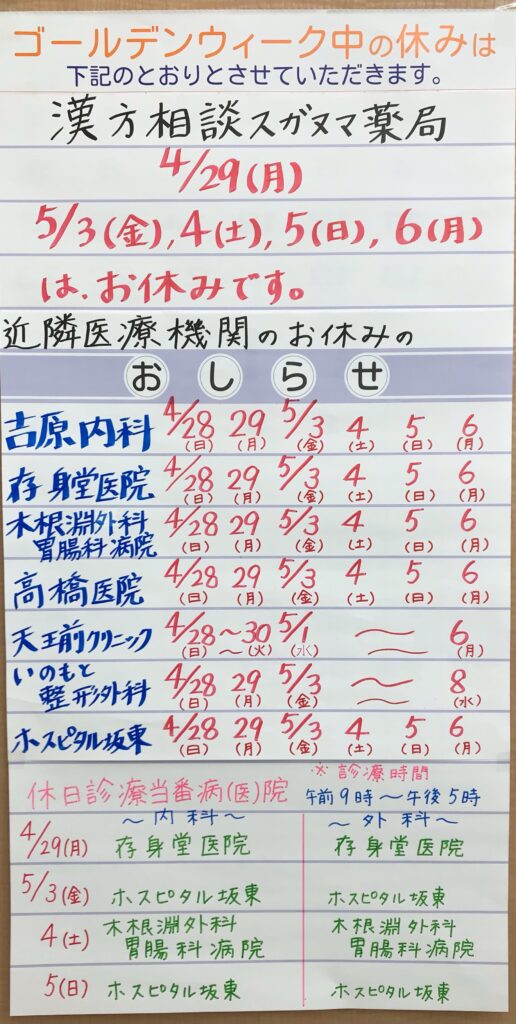 ゴールデンウィーク中の休みは
下記のとおりとさせていただきます。
漢方相談スガヌマ薬局
4/29(月)
5/3(金),4(土),5(日),6(月)
は、お休みです。
近隣医療機関のお休みの
おしらせ
吉原内科 4/28(日) 29(月) 5/3(金) 4(土) 5(日) 6(月)
存身堂医院 4/28(日) 29(月) 5/3(金) 4(土) 5(日) 6(月)
木根淵外科
胃腸科病院 4/28(日) 29(月) 5/3(金) 4(土) 5(日) 6(月)
高橋医院 4/28(日) 29(月) 5/3(金) 4(土) 5(日) 6(月)
天王前クリニック 4/28(日)〜30(火) 5/1(水) 〜 6(月)
いのもと
整形外科 4/28(日) 29(月) 5/3(金) 〜 8(水)
ホスピタル坂東 4/28(日) 29(月) 5/3(金) 4(土) 5(日) 6(月)
※診療時間
休日診療当番病(医)院 午前9時〜午後5時
〜内科〜 〜外科〜
4/29(月) 存身堂医院 存身堂医院
5/3(金) ホスピタル坂東 ホスピタル坂東
4(土) 木根淵外科 木根淵外科
胃腸科病院 胃腸科病院
5(日) ホスピタル坂東 ホスピタル坂東